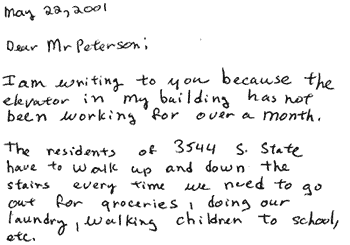 May 22, 2001
Dear Mr Peterson;
I am writing to you because the
elevator in my building has not
been working for over a month.
The residents of 3544 S. State
have to walk up and down the
stairs every time we need to go
out for groceries, doing our
laundry, walking children to school,
etc.